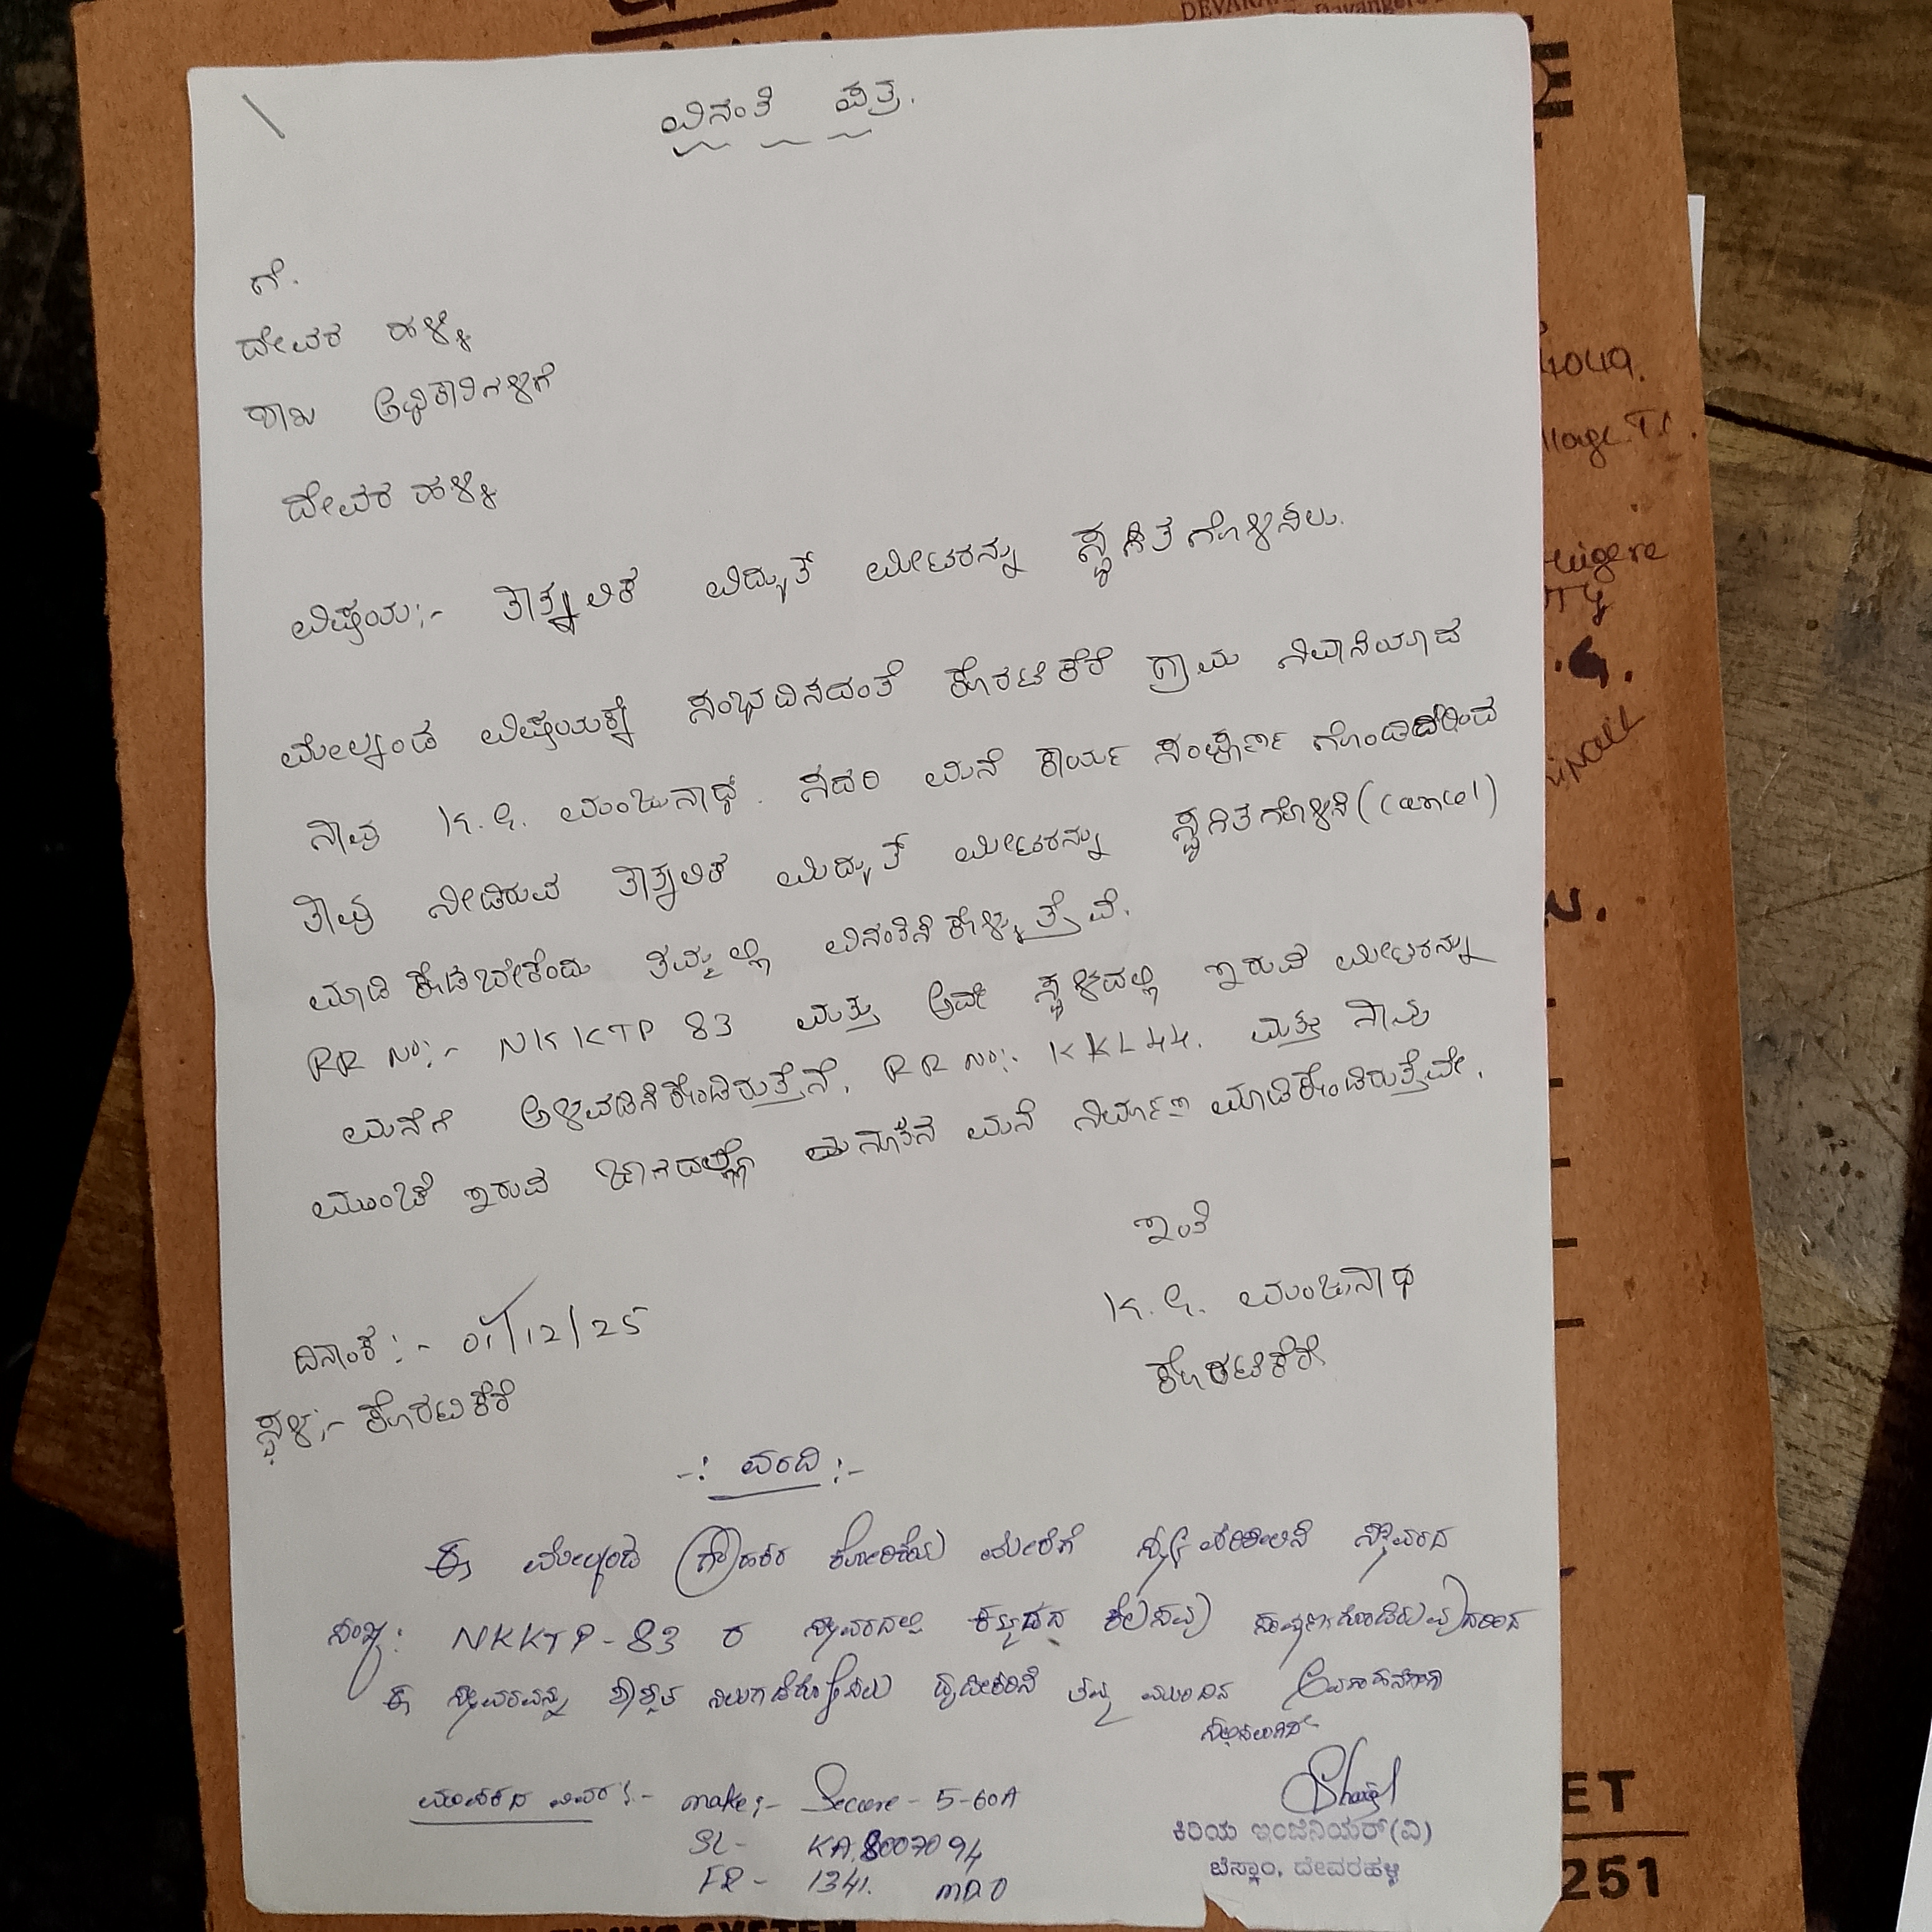 ವಿನಂತಿ ಪತ್ರ.
ಗೆ.
ದೇವರ ಹಳ್ಳಿ
ಶಾಖ ಅಧಿಕಾರಿಗಳಿಗೆ
ದೇವರ ಹಳ್ಳಿ
ವಿಷಯ:- ತಾತ್ಕಾಲಿಕ ವಿದ್ಯುತ್ ಮೀಟರನ್ನು ಸ್ಥಗಿತಗೊಳಿಸಲು.
ಮೇಲ್ಕಂಡ ವಿಷಯಕ್ಕೆ ಸಂಭದಿಸದಂತೆ ಕೊರಟಿಕೆರೆ ಗ್ರಾಮ ನಿವಾಸಿಯಾದ
ನಾವು K.G. ಮಂಜುನಾಥ. ಸದರಿ ಮನೆ ಕಾರ್ಯ ಸಂಪೂರ್ಣ ಗೊಂಡಿದ್ದರಿಂದ
ತಾವು ನೀಡಿರುವ ತಾತ್ಕಾಲಿಕ ವಿದ್ಯುತ್ ಮೀಟರನ್ನು ಸ್ಥಗಿತಗೊಳಿಸಿ (cancel)
ಮಾಡಿ ಕೊಡಬೇಕೆಂದು ತಮ್ಮಲ್ಲಿ ವಿನಂತಿಸಿಕೊಳ್ಳುತ್ತೆವೆ.
RR No:- NKKTP 83 ಮತ್ತು ಅದೇ ಸ್ಥಳದಲ್ಲಿ ಇರುವ ಮೀಟರನ್ನು
ಮನೆಗೆ ಅಳವಡಿಸಿಕೊಂಡಿರುತ್ತೆನೆ. RR No:- KKL44. ಮತ್ತು ನಾವು
ಮುಂಚೆ ಇರುವ ಜಾಗದಲ್ಲೇ ನೂತನ ಮನೆ ನಿರ್ಮಾಣ ಮಾಡಿಕೊಂಡಿರುತ್ತೆವೇ.
ಇಂತಿ
K.G. ಮಂಜುನಾಥ
ಕೊರಟಿಕೆರೆ
ದಿನಾಂಕ:- 01/12/25
ಸ್ಥಳ:- ಕೊರಟಿಕೆರೆ
-: ವರದಿ :-
ಈ ಮೇಲ್ಕಂಡ ಗ್ರಾಹಕರ ಕೋರಿಕೆಯ ಮೇರೆಗೆ ಸ್ಥಳ ಪರಿಶೀಲಿಸಿ ಸ್ಥಾವರದ
ಸಂಖ್ಯೆ: NKKTP-83 ರ ಸ್ಥಾವರದಲ್ಲಿ ಕಟ್ಟಡದ ಕೆಲಸವು ಪೂರ್ಣಗೊಂಡಿರುವುದರಿಂದ
ಈ ಸ್ಥಾವರವನ್ನು ಶಾಶ್ವತ ನಿಲುಗಡೆಗೊಳಿಸಲು ದೃಢೀಕರಿಸಿ ತಮ್ಮ ಮುಂದಿನ ಅವಗಾಹನೆಗಾಗಿ
ಸಲ್ಲಿಸಲಾಗಿದೆ
ಮಾಪಕದ ವಿವರ:- make:- Secure - 5-60A
SL- KA.8007094
FR - 1341. MRO
ಕಿರಿಯ ಇಂಜಿನಿಯರ್(ವಿ)
ಬೆಸ್ಕಾಂ, ದೇವರಹಳ್ಳಿ
4049.
251